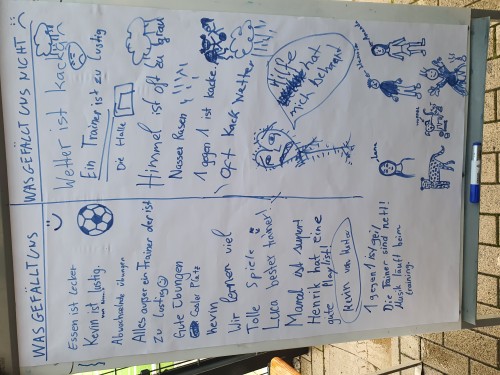 WAS GEFÄLLT UNS
Essen ist lecker
Kevin ist lustig.
Abwechselnde übungen
Alles außer ein Trainer der ist
zu lustig
Gute Übungen
Cooler Platz
Kevin
Wir lernen viel
Tolle Spiele
Luca bester trainer!
Manal ist super!
Henrik hat eine
gute Playlist!
Kevin von Hertha
1 gegen 1 ist geil
Die Trainer sind nett!
Musik läuft beim
training.
WAS GEFÄLLT UNS NICHT
Wetter ist kacke
Ein Trainer ist zu lustig
Die Halle
Himmel ist oft zu grau
Nasser Rasen !!!!
1 gegen 1 ist kacke
Oft Kack Wetter
Hilfe
hat
mich betrogen!